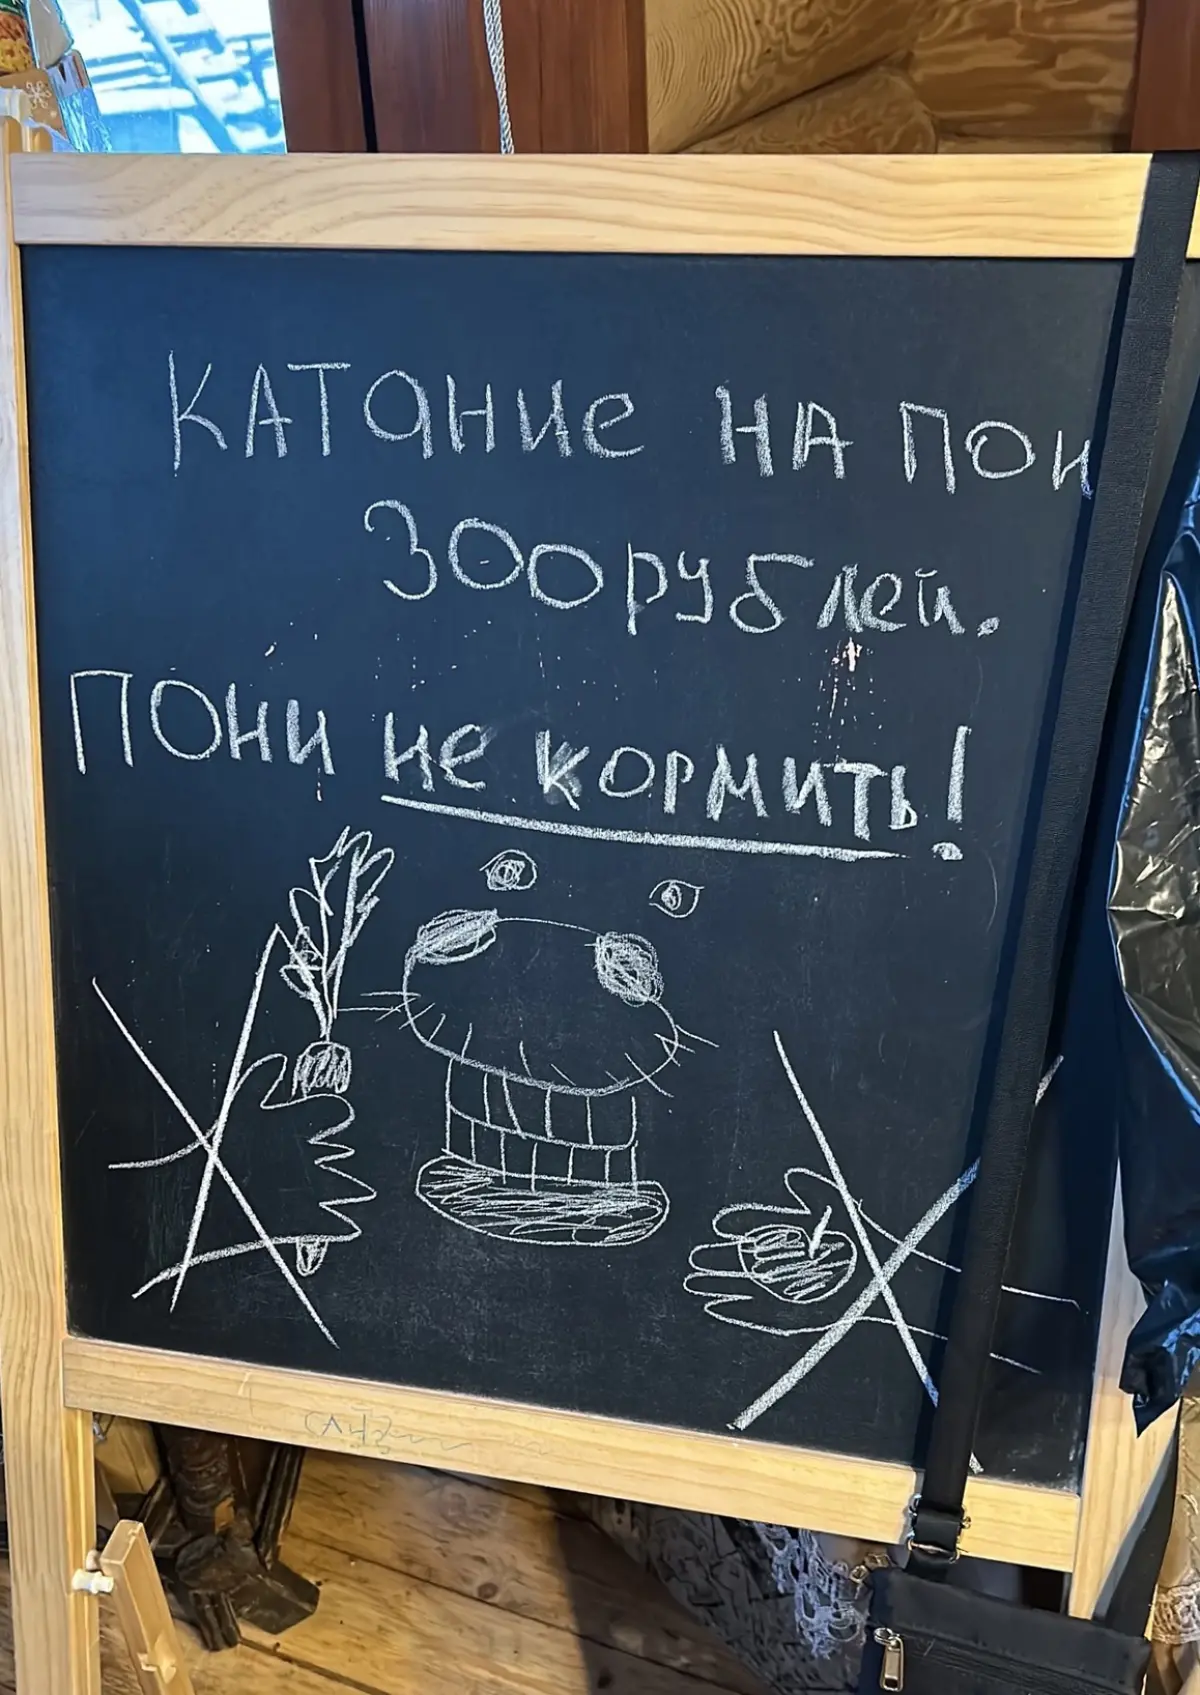 КАТАНИЕ НА ПОНИ
300 РУБЛЕЙ.
ПОНИ НЕ КОРМИТЬ!